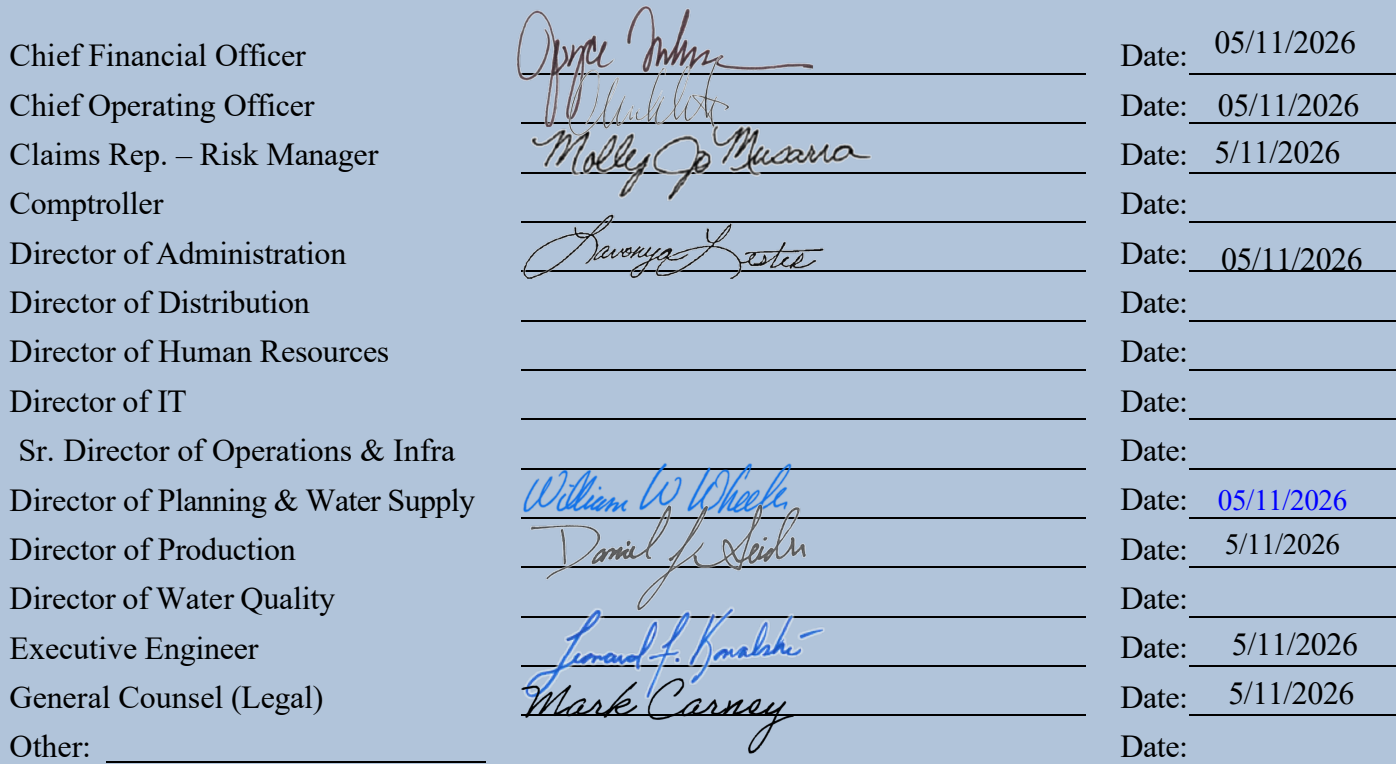 Chief Financial Officer Date: 05/11/2026
Chief Operating Officer Date: 05/11/2026
Claims Rep. – Risk Manager Molly Jo Musarra Date: 5/11/2026
Comptroller Date:
Director of Administration Lavonya Lester Date: 05/11/2026
Director of Distribution Date:
Director of Human Resources Date:
Director of IT Date:
Sr. Director of Operations & Infra Date:
Director of Planning & Water Supply William W Wheeler Date: 05/11/2026
Director of Production Daniel J. Seidu Date: 5/11/2026
Director of Water Quality Date:
Executive Engineer Leonard F. Kowalski Date: 5/11/2026
General Counsel (Legal) Mark Carney Date: 5/11/2026
Other: Date: